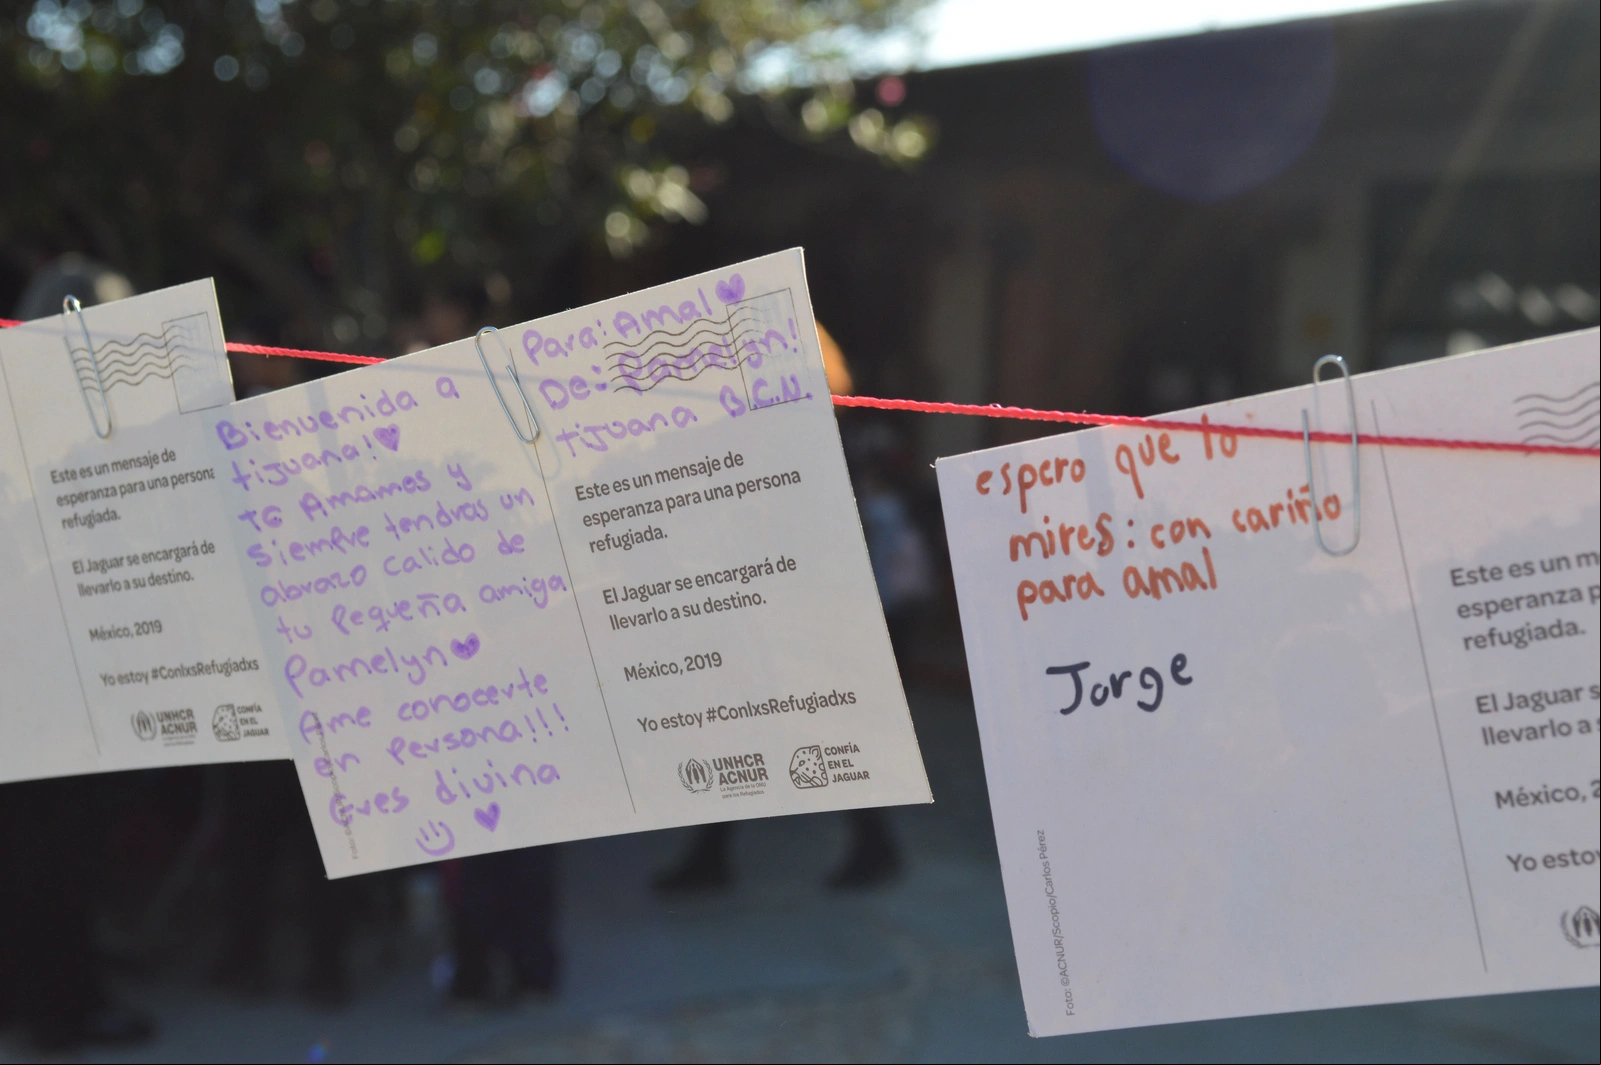 Este es un mensaje de
esperanza para una persona
refugiada.
El Jaguar se encargará de
llevarlo a su destino.
México, 2019
Yo estoy #ConlxsRefugiadxs
UNHCR
ACNUR
CONFÍA
EN EL
JAGUAR
Bienvenida a
tijuana!
TE Amames y
siempre tendras un
abrazo calido de
tu Pequeña amiga
Pamelyn
Ame conocerte
en Persona!!!
Eres divina
Para: Amal
De: Pamelyn!
tijuana B.C.N.
Este es un mensaje de
esperanza para una persona
refugiada.
El Jaguar se encargará de
llevarlo a su destino.
México, 2019
Yo estoy #ConlxsRefugiadxs
UNHCR
ACNUR
La Agencia de la ONU
para los Refugiados
CONFÍA
EN EL
JAGUAR
espero que lo
mires: con cariño
para amal
Jorge
Foto: ©ACNUR/Scopio/Carlos Pérez
Este es un m
esperanza p
refugiada.
El Jaguar s
llevarlo a
México, 2
Yo esto